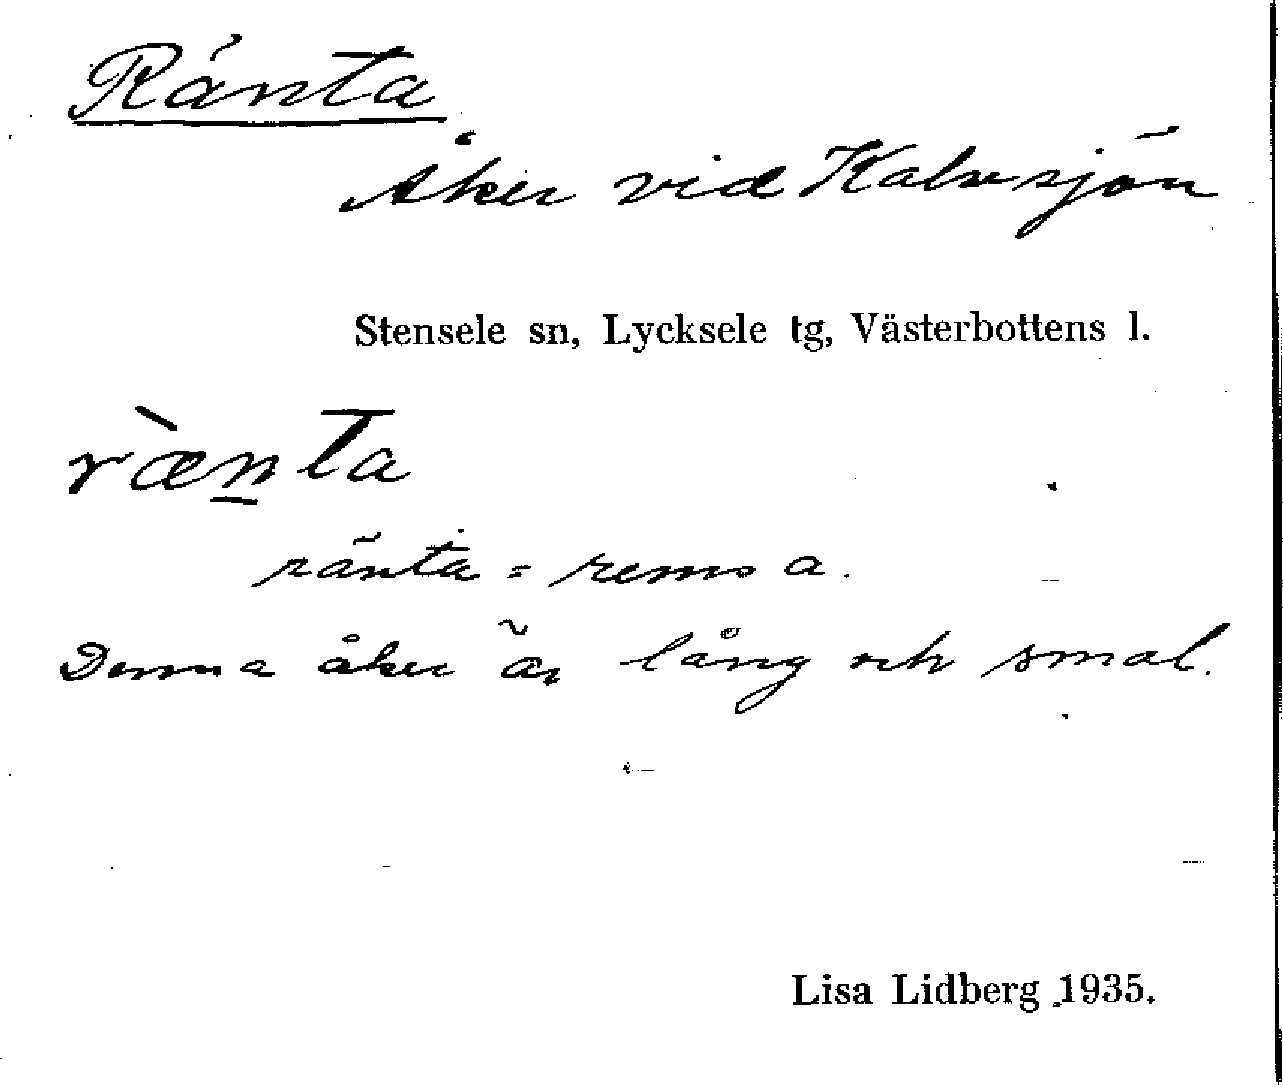 Ränta
Åker vid Kalvsjön
Stensele sn, Lycksele tg, Västerbottens l.
ræ̀n̲ta
ränta = remsa.
Denna åker är lång och smal.
Lisa Lidberg 1935.